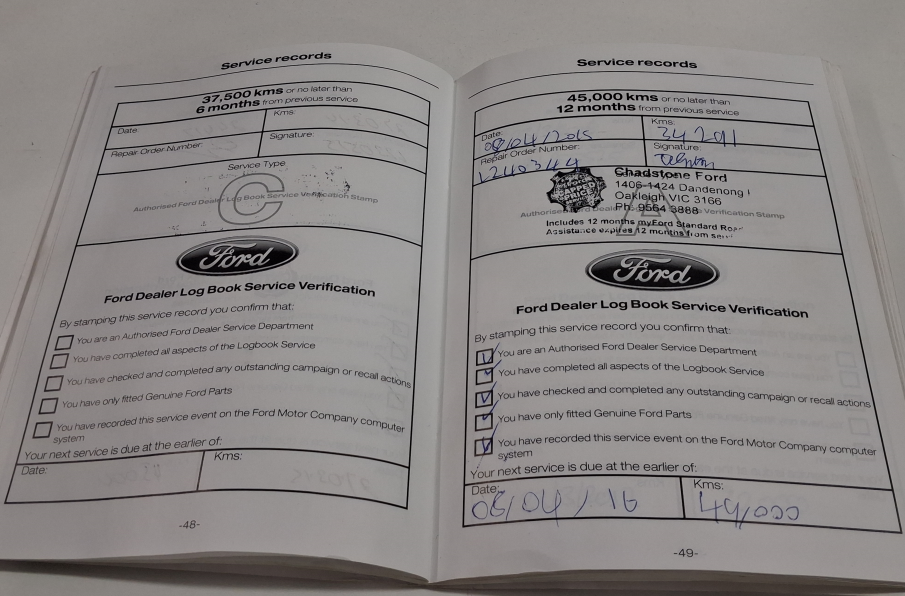 Service records
37,500 kms or no later than
6 months from previous service
Date:
Kms:
Repair Order Number:
Signature:
Service Type
C
Authorised Ford Dealer Log Book Service Verification Stamp
Ford
Ford Dealer Log Book Service Verification
By stamping this service record you confirm that:
You are an Authorised Ford Dealer Service Department
You have completed all aspects of the Logbook Service
You have checked and completed any outstanding campaign or recall actions
You have only fitted Genuine Ford Parts
You have recorded this service event on the Ford Motor Company computer
system
Your next service is due at the earlier of:
Date:
Kms:
-48-
Service records
45,000 kms or no later than
12 months from previous service
Date:
08/04/2015
Kms:
34291
Repair Order Number:
1240344
Signature:
Chadstone Ford
1406-1424 Dandenong
Oakleigh VIC 3166
Ph: 9564 3888
A
Authorised Verification Stamp
Includes 12 months myFord Standard
Assistance expires 12 months from
Ford
Ford Dealer Log Book Service Verification
By stamping this service record you confirm that:
You are an Authorised Ford Dealer Service Department
You have completed all aspects of the Logbook Service
You have checked and completed any outstanding campaign or recall actions
You have only fitted Genuine Ford Parts
You have recorded this service event on the Ford Motor Company computer
system
Your next service is due at the earlier of:
Date:
08/04/16
Kms:
49,000
-49-